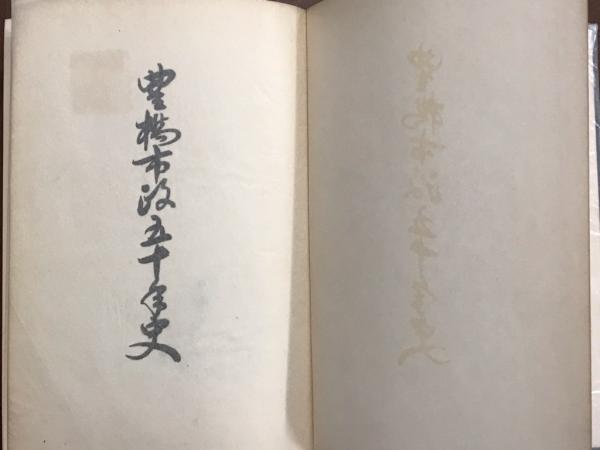 豊橋市政五十年史